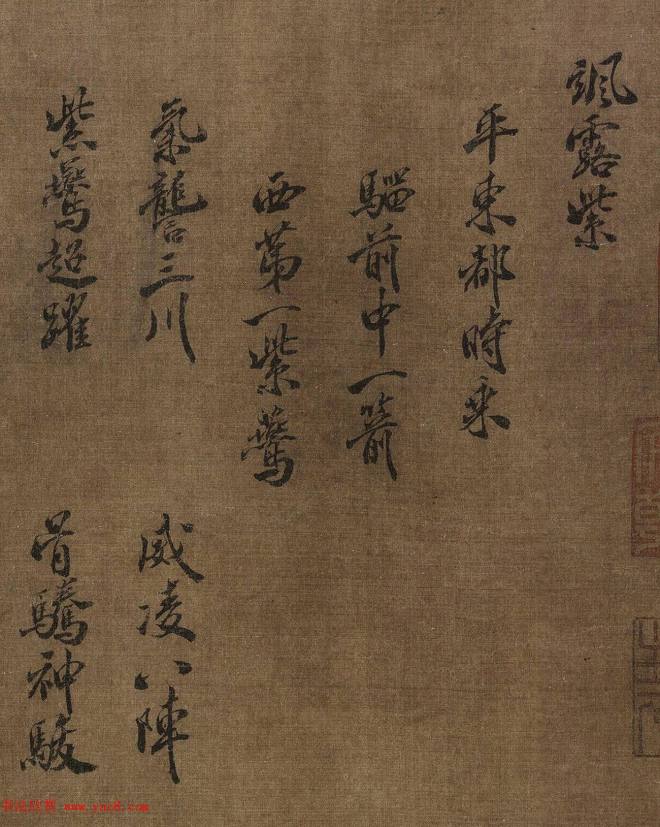 紫鷰超躍
骨騰神駿
氣讋三川
威凌八陣
西第一紫鷰
騮前中一箭
平東都時乘
颯露紫
书法欣赏 www.yac8.com